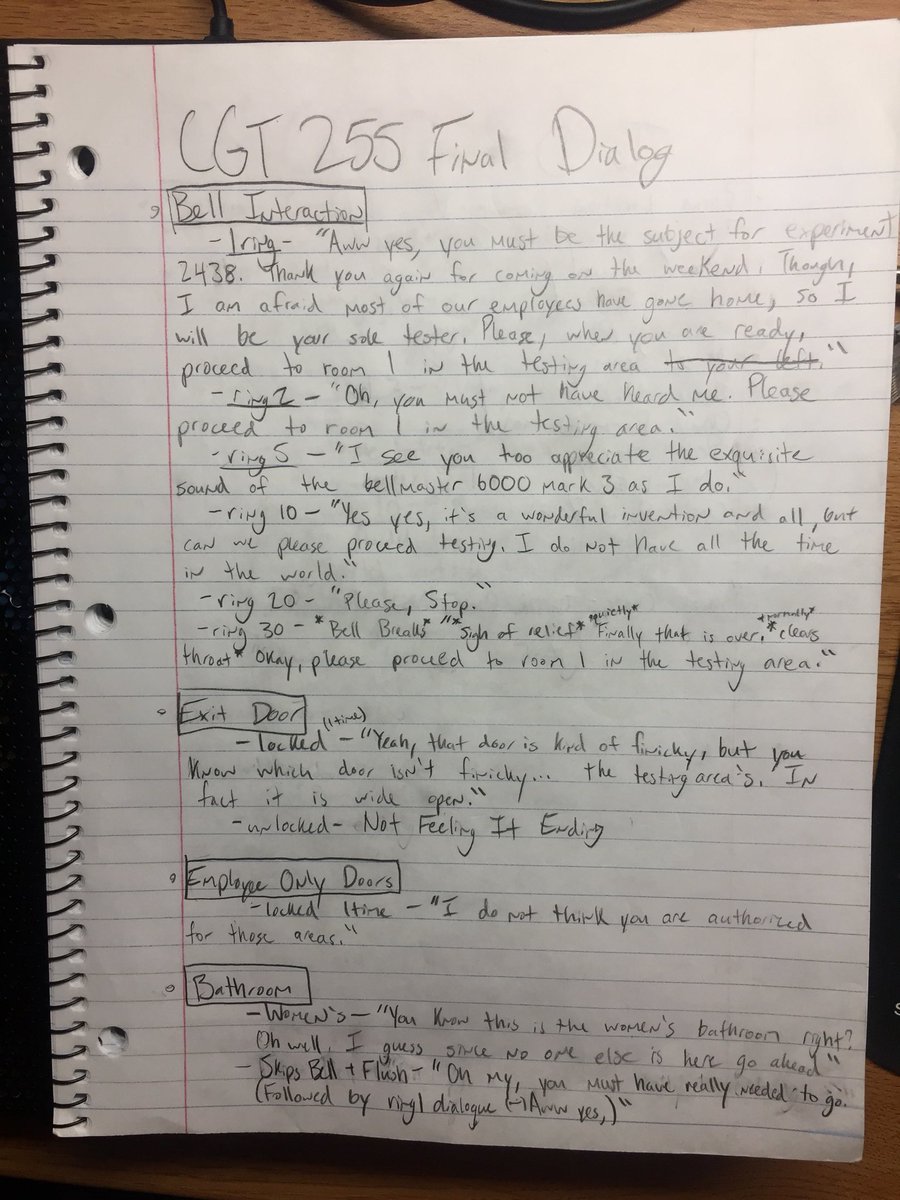 CGT 255 Final Dialog
Bell Interaction
- 1ring - "Aww yes, you must be the subject for experiment
2438. Thank you again for coming on the weekend. Though,
I am afraid most of our employees have gone home, so I
will be your sole tester. Please, when you are ready,
proceed to room 1 in the testing area to your left."
- ring 2 - "Oh, you must not have heard me. Please
proceed to room 1 in the testing area."
- ring 5 - "I see you too appreciate the exquisite
sound of the bellmaster 6000 mark 3 as I do."
- ring 10 - "Yes yes, it's a wonderful invention and all, but
can we please proceed testing. I do not have all the time
in the world."
- ring 20 - "Please, Stop."
*quietly* *normally*
- ring 30 - *Bell Breaks* "*sigh of relief* Finally that is over. *clears
throat* Okay, please proceed to room 1 in the testing area."
Exit Door
(1time)
- locked - "Yeah, that door is kind of finicky, but you
know which door isn't finicky... the testing area's. In
fact it is wide open."
- unlocked - Not Feeling It Ending
Employee Only Doors
- locked 1time - "I do not think you are authorized
for those areas."
Bathroom
- Women's - "You know this is the women's bathroom right?
Oh well, I guess since no one else is here go ahead"
- Skips Bell + Flush - "Oh my, you must have really needed to go.
(Followed by ring1 dialogue (→Aww yes,)"